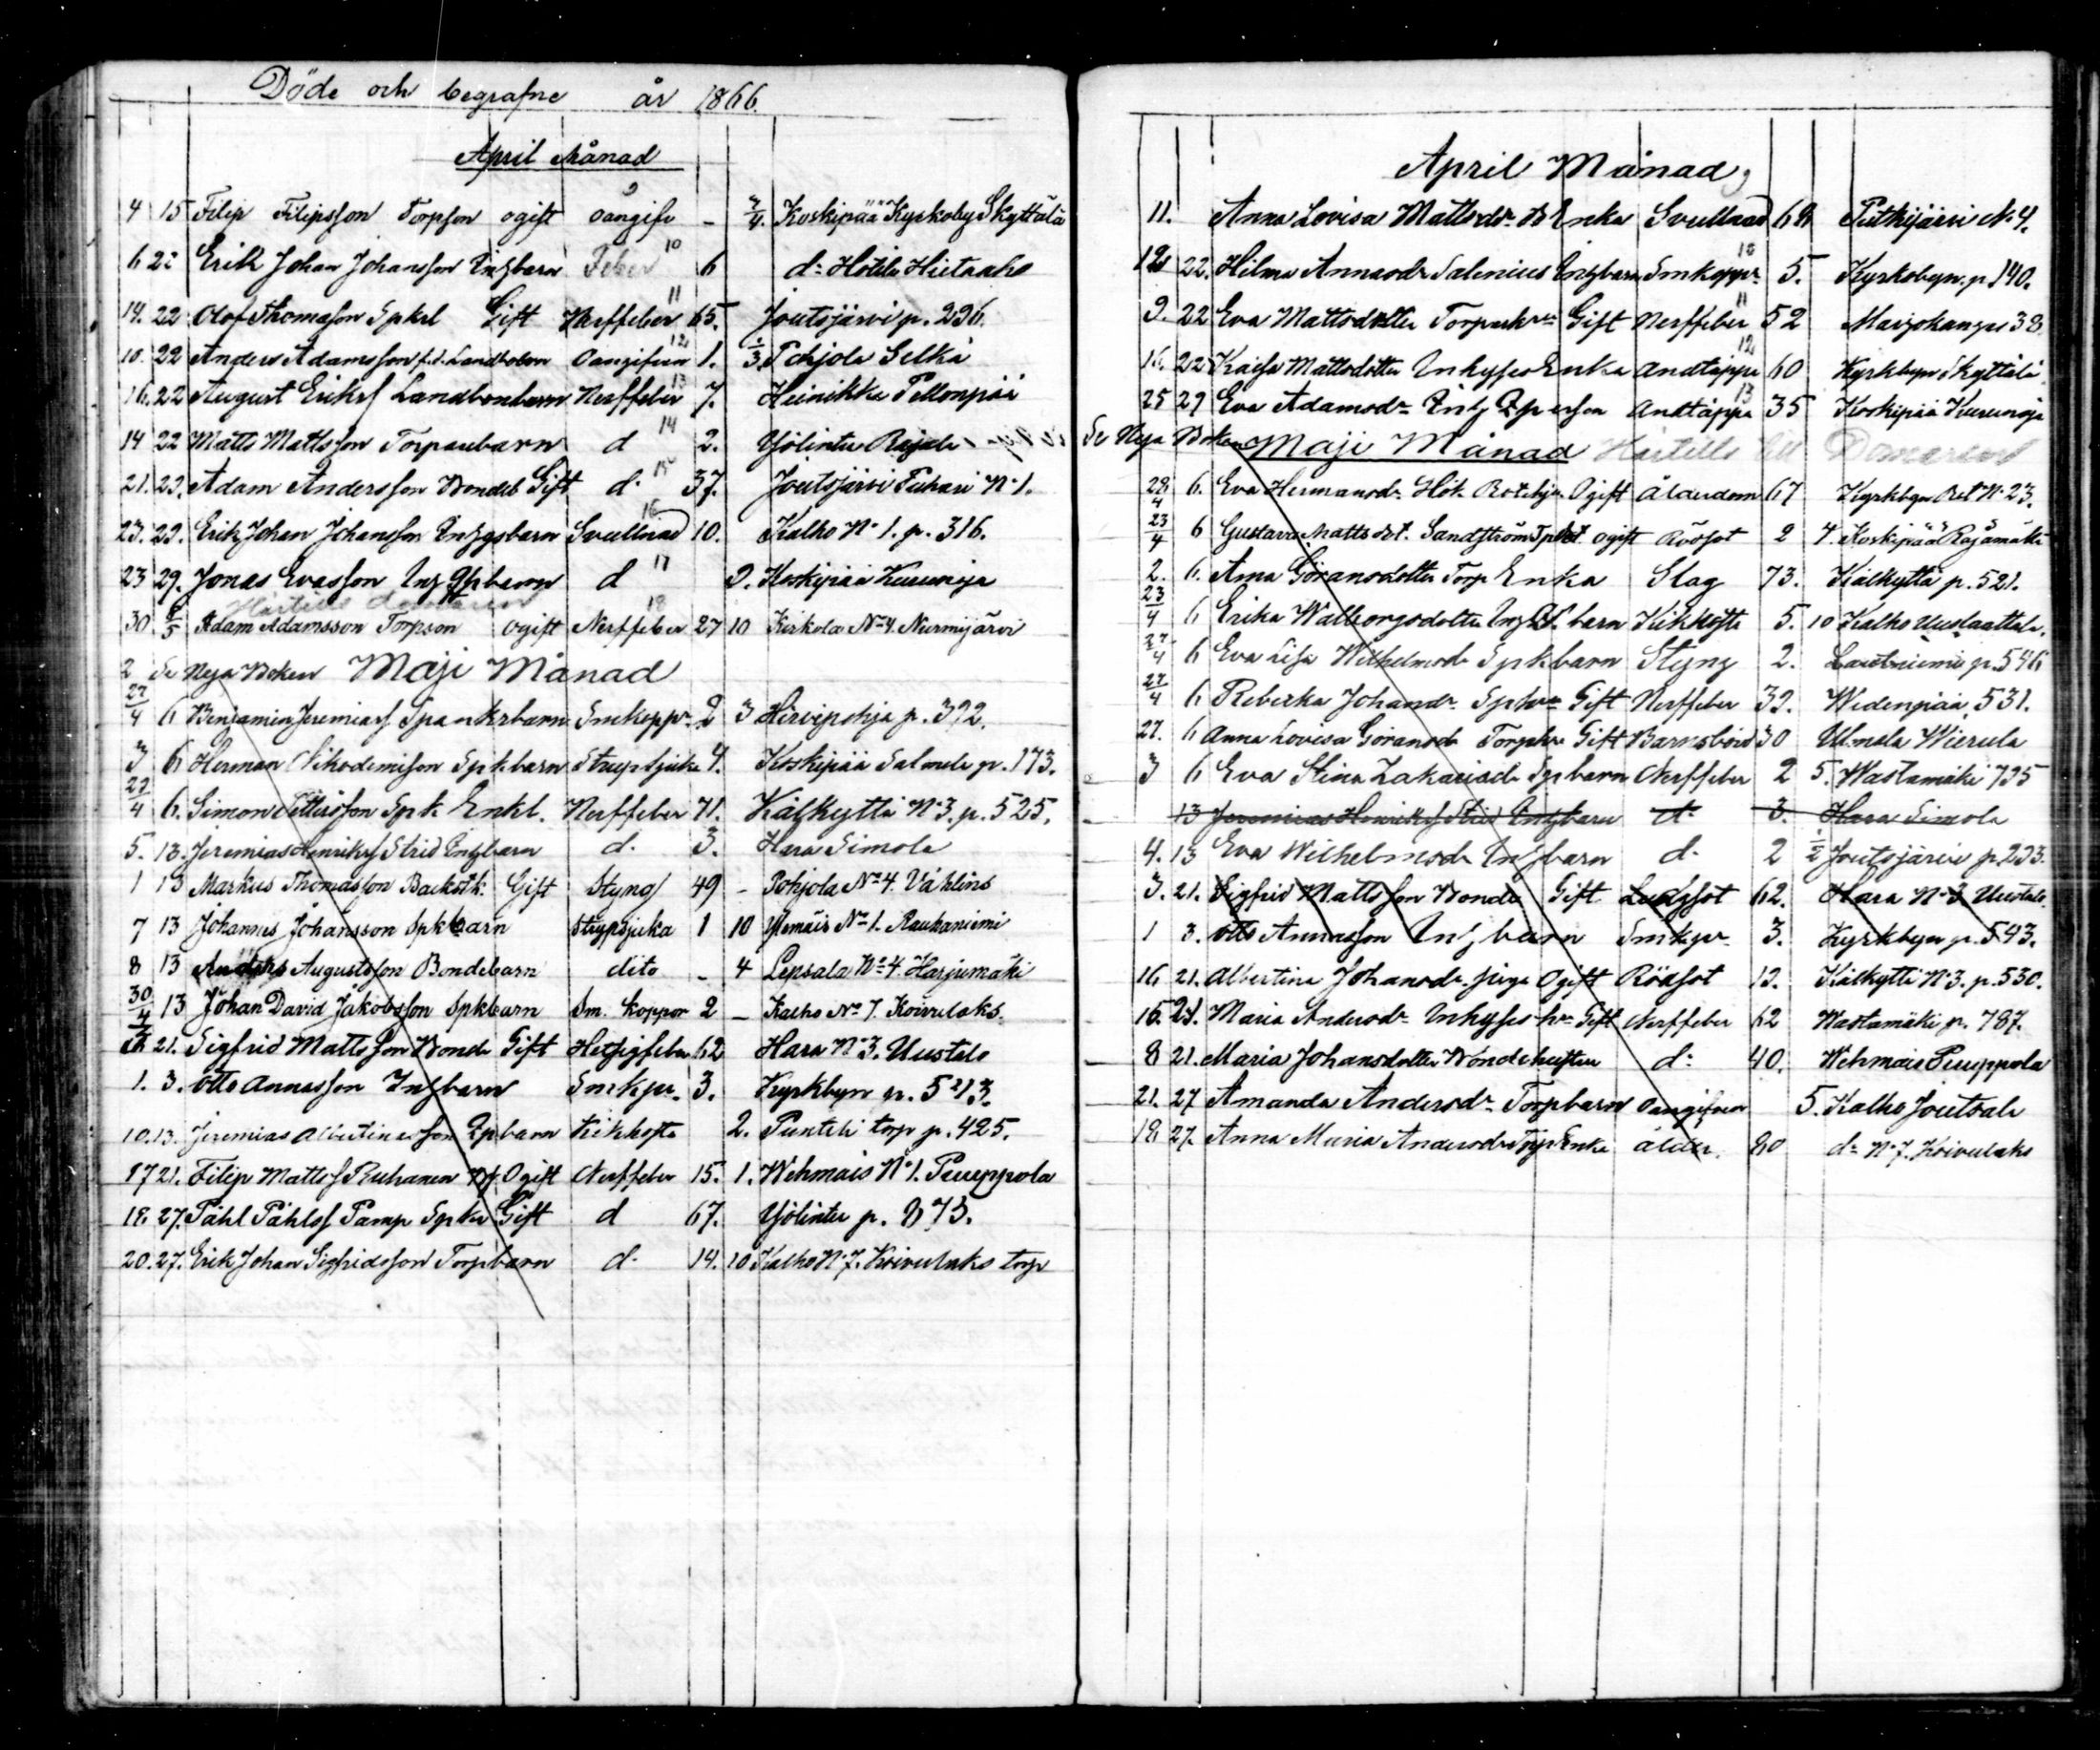 Döde och begrafne år 1866.
April Månad
4 15 Filip Filipsson Torpson ogift oangifv - 3/4. Koskipää Kyrkoby Skyttälä
6 22 Erik Johan Johansson Inhbarn Feber 10 6 d:o Hötila Hietaaho
14. 22 Olof Thomasson Spkl Gift Nerffeber 11 65. Joutsjärvi p. 296.
10. 22 Anders Adamsson f.d. Landboson Oangifven 12 1. 1/3 Pohjola Selkä
16. 22 August Eriksf Landbonbarn Nerffeber 13 7. Heinikka Pellonpää
14 22 Matts Mattsson Torparebarn d 14 2. Yölintu Rajala
21. 29. Adam Andersson Bondeb Gift d. 15 37. Joutsjärvi Tuhari N:o 1.
23. 29. Erik Johan Johansson Inhysbarn Svullnad 16 10. Kalho N:o 1. p. 316.
23 29. Jonas Evasson Inh barn d 17 2. Koskipää Kuusnoja
Härtills
30 6/5 Adam Adamsson Torpson ogift Nerffeber 18 27 10 Kirkola No 4. Nurmijärvi
Se Nya Boken Maji Månad
27/4 6 Benjamin Jeremiasf Spankrbarn Smkoppr 2 3 Hirvipohja p. 392.
3 6 Herman Nikodemison Spkbarn Strupsjuka 4. Koskipää Salmela p. 173.
27/4 6. Simon Tittusson Spk Enkl. Nerffeber 71. Kälkyttä N:o 3. p. 525.
5. 13. Jeremias Henriksf Strid Inhbarn d. 3. Hara Simola
1 13 Markus Thomasson Backstk: Gift Styng 49 - Pohjola No 4. Vählins
7 13 Johannes Johansson Spkbarn Strypsjuka 1 10 Wemäis No 1. Rauhaniemi
8 13 Anders Augustsson Bondebarn dito - 4 Lepsala No 4. Harjumäki
30/4 13 Johan David Jakobsson Spkbarn Sm. koppor 2 - Kalho No 7. Koivulaks.
21. Sigfrid Mattsson Bonde Gift Hetsigfeber 62 Hara N:o 3. Uustalo
1. 3. Otto Annasson Inhbarn Smkpr. 3. Kyrkbyn p. 543.
10. 13. Jeremias Albertinasson barn Kikhosta 2. Puntti torp p. 425.
17 21. Filip Mattsf Ruhanen Ogift Nerffeber 15. 1. Wehmais N:o 1. Puuppola
18. 27. Påhl Påhlsf Pamp Spkr Gift d 67. Yölintu p. 873.
20. 27. Erik Johan Sigfridsson Torpbarn d. 14. 10 Kalho N:o 7. Koivulaks torp
April Månad
11. Anna Lovisa Mattsdr Enka Svullnad 68 Putkijärvi N. 4.
18 22. Hilma Annasdr Salenius Inhbarn Smkoppr. 10 5. Kyrkobyn. p. 140.
9. 22 Eva Mattsdotter Torparehru Gift Nerffeber 11 52 Maijokangas 38
16. 22 Kaisa Mattsdotter Inhyses Enka Andtäppa 12 60 Kyrkbyn Skyttälä
25 29 Eva Adamsdr Inh person Andtäppa 13 35 Koskipää Kuusnoja
Se Nya Boken Maji Månad Härtills till Domaren
28/4 6. Eva Hermansdr Hök Rotehj. Ogift Ålderdom 67 Kyrkbyn N:o 23.
23/4 6 Gustava Mattsdot. Sandström Spkdt ogift Rödsot 2 4. Koskipää Rajamäki
2. 6. Anna Göransdotter Torp Enka Slag 73. Kälkyttä p. 521.
23/4 6 Erika Walborgsdotter Inh barn Kikhosta 5. 10 Kalho Uuslaattala.
27/4 6 Eva Lisa Wilhelmsdr Spkbarn Styng 2. Lautniemi p. 546
27/4 6 Rebecka Johansdr. Spkru Gift Nerffeber 39. Widenpää, 531.
27. 6 Anna Lovisa Göransdr Torphu Gift Barnsbörd 30 Ulmala Wierula
3 6 Eva Stina Zakariasdr Spbarn Nerffeber 2 5. Wastamäki 735
13 Jeremias Henriksf Strid Inhbarn d. 3. Hara Simola
4. 13 Eva Wilhelmsdr Inhbarn d. 2 1/2 Joutsjärvi p. 293.
3. 21. Sigfrid Mattsson Bonde Gift Lungsot 62. Hara N:o 3 Uustalo
1 3. Otto Annasson Inhbarn Smkpr. 3. Kyrkbyn p. 543.
16 21. Albertina Johansdr. piga Ogift Rödsot 19. Kälkyttä N:o 3. p. 530.
15. 21. Maria Andersdr Inhyses hu Gift Nerffeber 62 Wastamäki p. 787.
8 21. Maria Johansdotter Bondehustru d: 40. Wehmais Puuppola
21. 27 Amanda Andersdr. Torpbarn Oangifven 5. Kalho Joutsala
18 27. Anna Maria Andersdr Torp Enka ålder. 80 d:o N:o 7. Koivulaks